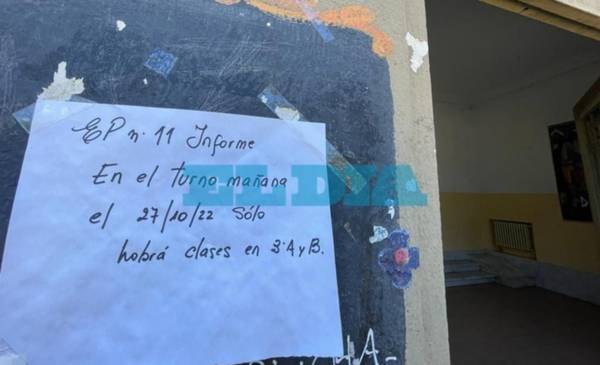 EP n. 11 Informe
En el turno mañana
EL DIA
el 27/10/22 Sólo
habrá clases en 3° A y B.